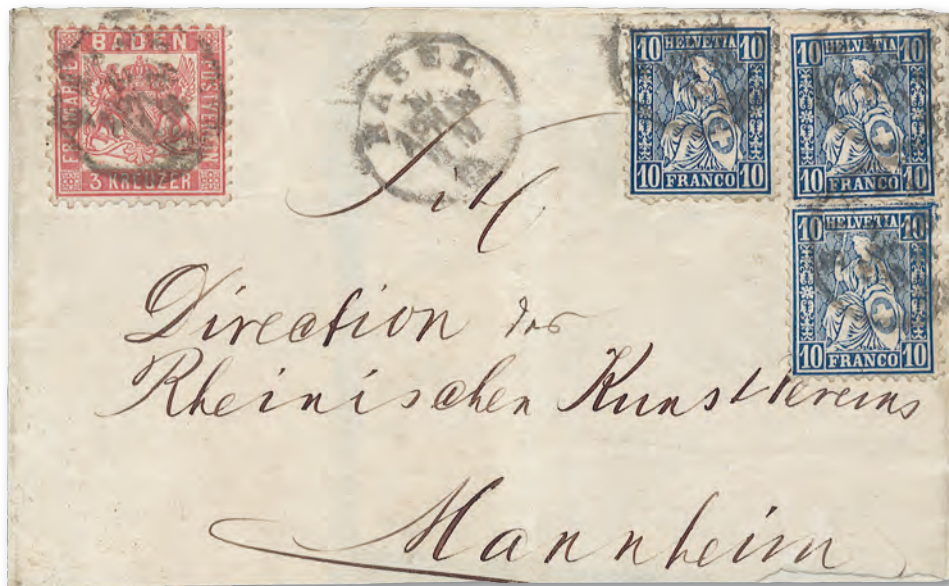 BADEN
FREIMARKE
POSTVEREIN
3 KREUZER
BASEL
10 HELVETIA 10
10 FRANCO 10
10 HELVETIA 10
10 FRANCO 10
10 HELVETIA 10
10 FRANCO 10
Titl
Direction des
Rheinischen Kunstvereins
Mannheim